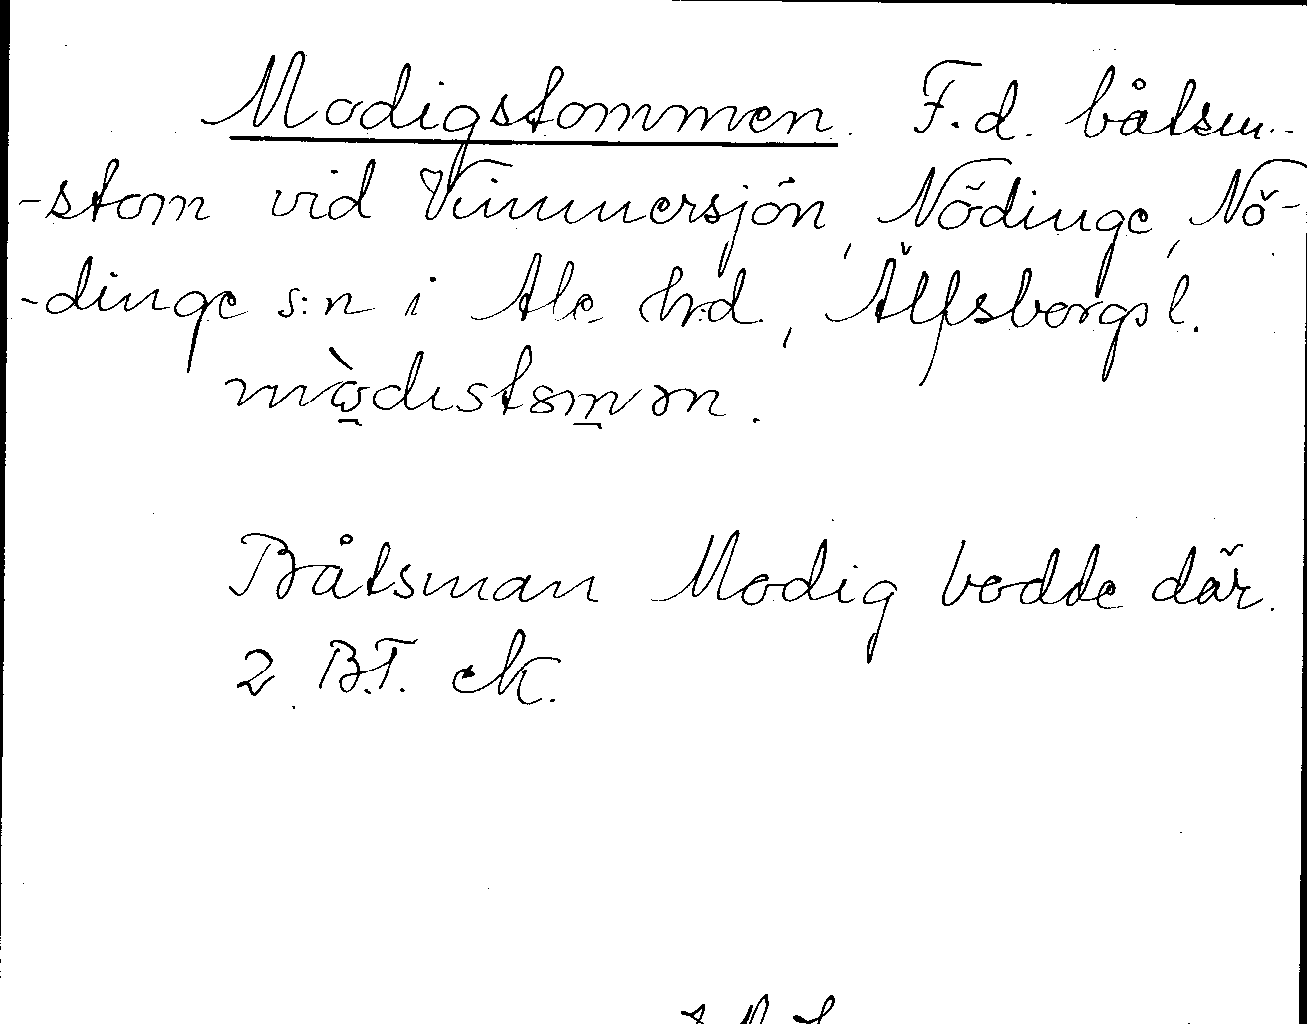 Modigstommen. F.d. båtsm.-
-stom vid Vimmersjön, Nödinge, Nö-
-dinge s:n i Ale hd, Älfsborgs l.
Båtsman Modig bodde där.
2 B.T. ek.